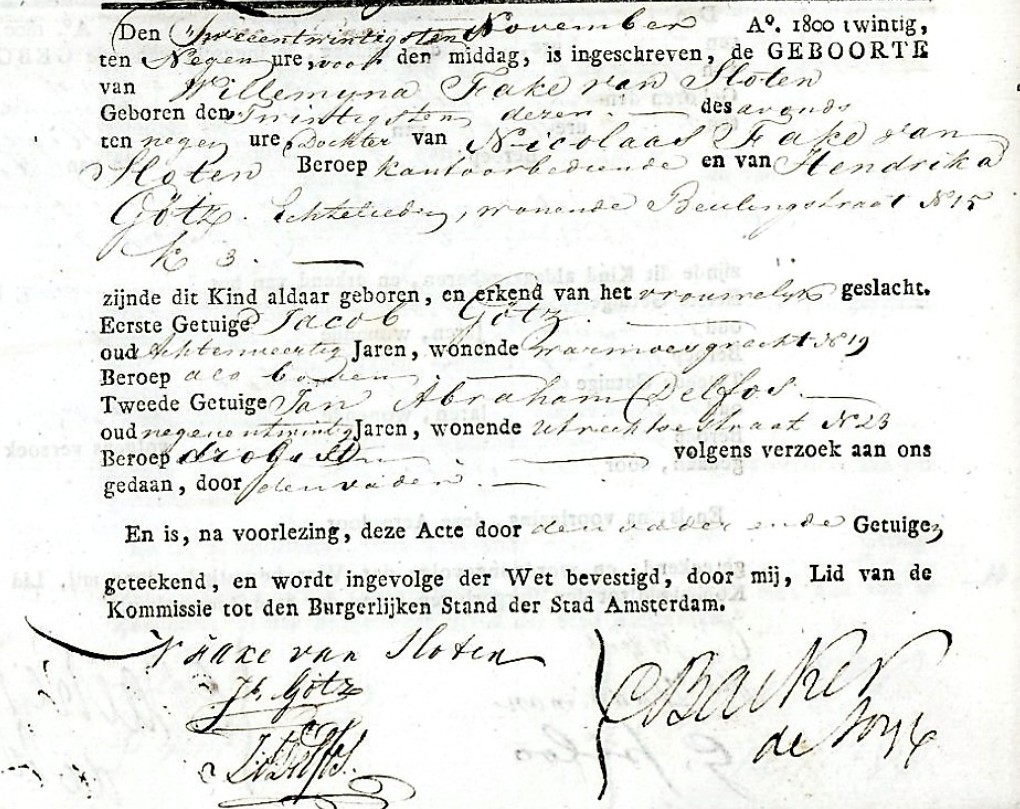 Den Tweeentwintigsten November Aº. 1800 twintig,
ten Negen ure, voor den middag, is ingeschreven, de GEBOORTE
van Willemyna Fake van Sloten
Geboren den Twintigsten dezer des avonds
ten negen ure, Dochter van Nicolaas Fake van
Sloten Beroep kantoorbediende en van Hendrika
Götz. Echtelieden, wonende Beulingstraat N 15
k 3.
zijnde dit Kind aldaar geboren, en erkend van het vrouwelyk geslacht.
Eerste Getuige Jacob Götz
oud Jaren, wonende warmoesgracht N 19
Beroep als boven
Tweede Getuige Jan Abraham Delfos.
oud negenentwintig Jaren, wonende Utrechtsestraat N 23
Beroep drogist volgens verzoek aan ons
gedaan, door den vader.
En is, na voorlezing, deze Acte door den vader ende Getuigen
geteekend, en wordt ingevolge der Wet bevestigd, door mij, Lid van de
Kommissie tot den Burgerlijken Stand der Stad Amsterdam.
N Faake van Sloten
Jb. Götz
J A Delfos.
Backer